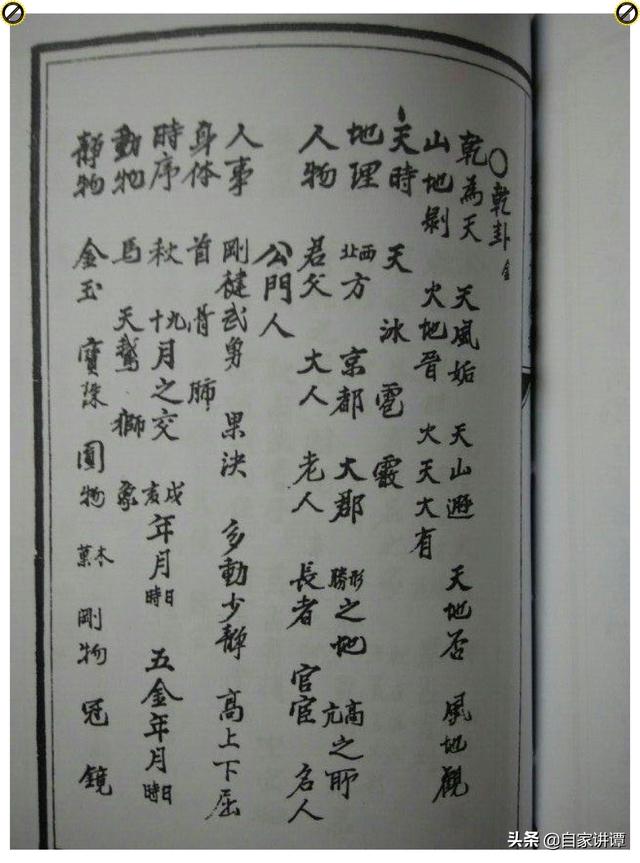 ○乾卦 金
乾為天 天風姤 天山遯 天地否 風地觀
山地剝 火地晉 火天大有
天時 天 冰 雹 霰
地理 西北方 京都 大郡 形勝之地 高亢之所
人物 君父 大人 老人 長者 官宦 名人
公門人
人事 剛健武勇 果決 多動少靜 高上下屈
身体 首 骨 肺
時序 秋 九十月之交 戌亥年月日時 五金年月日時
動物 馬 天鵝 獅 象
靜物 金玉 寶珠 圓物 木菓 剛物 冠 鏡
头条 @自家讲谭